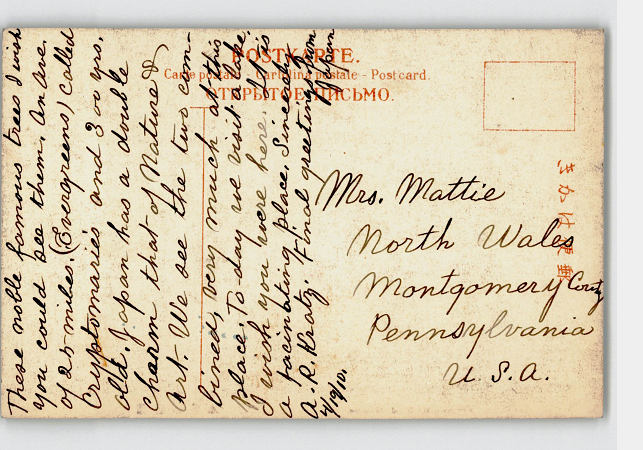 POSTKARTE.
Carte postale - Cartolina postale - Postcard.
ОТКРЫТОЕ ПИСЬМО.
These noble famous trees I wish
you could see them. An ave.
of 25 miles. (Evergreens) called
Cryptomaries and 300 yrs.
old. Japan has a double
charm that of Nature &
art. We see the two com-
bined, very much at this
place. To-day we visit a
I wish you were here. It is
a facinating place. Sincerely
A. R. Kratz. Final greetings from
Japan
4/19/10.
Mrs. Mattie
North Wales
Montgomery County
Pennsylvania
U. S. A.
きかは便郵